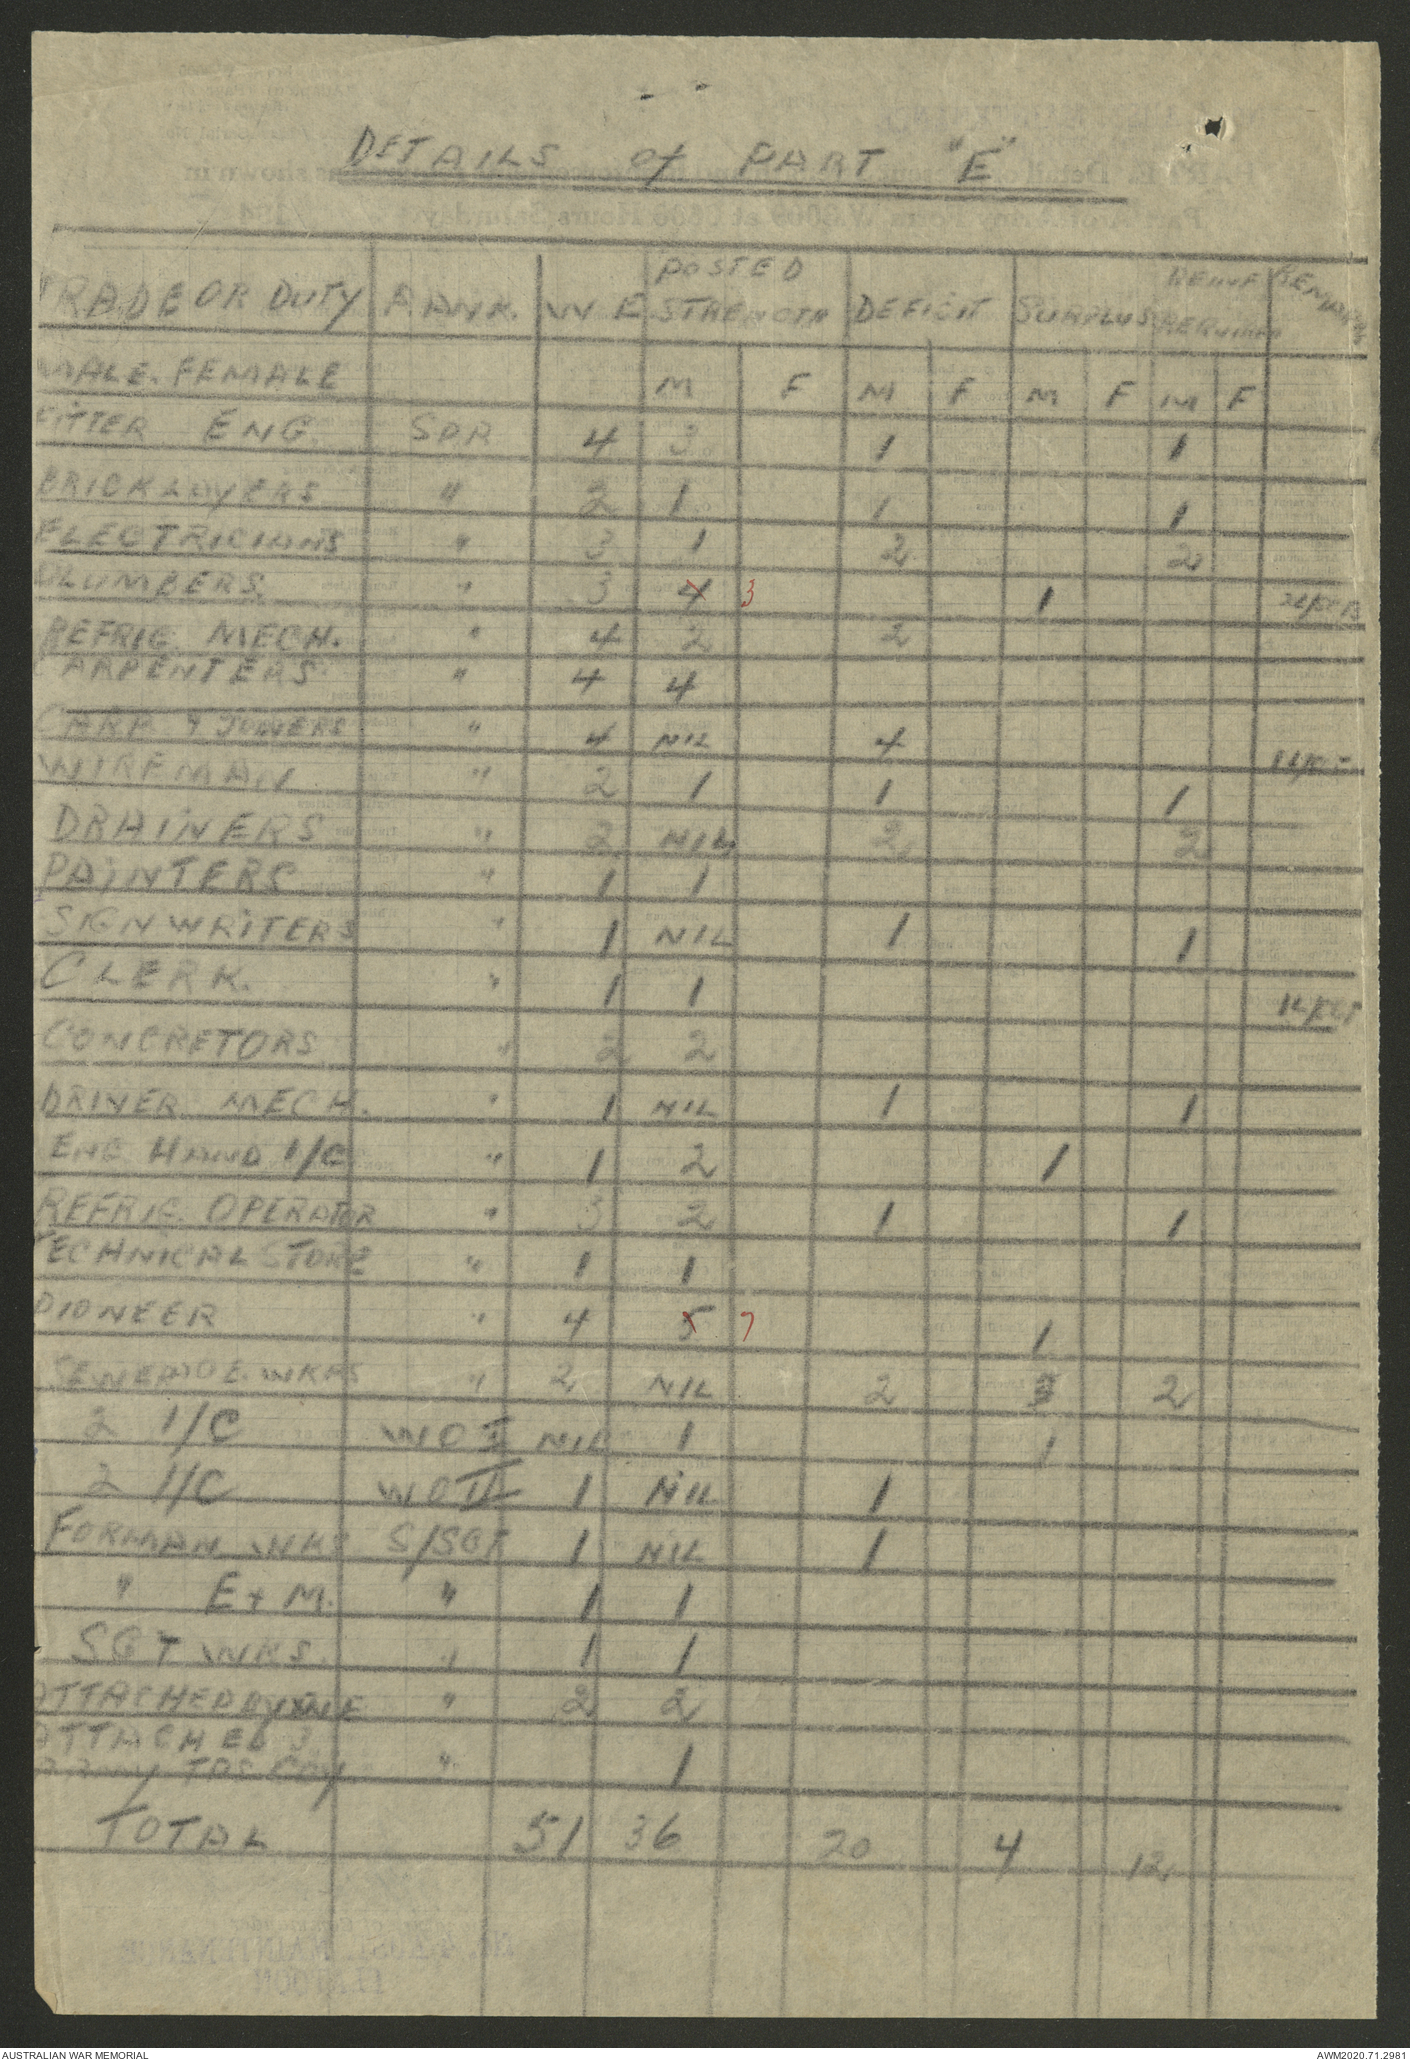 DETAILS of PART "E"
TRADE OR DUTY RANK. W E. POSTED STRENGTH DEFICIT SURPLUS REINF REQUIRED REMARKS
MALE. FEMALE M F M F M F M F
FITTER ENG. SPR 4 3 1 1
BRICKLAYERS " 2 1 1 1
ELECTRICIANS " 3 1 2 2
PLUMBERS. " 3 4 3 1
REFRIG. MECH. " 4 2 2
CARPENTERS " 4 4
CARP & JOINERS " 4 NIL 4
WIREMAN " 2 1 1 1
DRAINERS " 2 NIL 2 2
PAINTERS " 1 1
SIGNWRITERS " 1 NIL 1 1
CLERK. " 1 1
CONCRETORS " 2 2
DRIVER MECH. " 1 NIL 1 1
ENG HAND I/C " 1 2 1
REFRIG. OPERATOR " 3 2 1 1
TECHNICAL STORE " 1 1
PIONEER " 4 5 7 1
SEWERAGE. WKRS " 2 NIL 2 2
2 I/C WO I NIL 1 1
2 I/C WO II 1 NIL 1
FORMAN WKS S/SGT 1 NIL 1
" E & M. " 1 1
SGT WKS. " 1 1
ATTACHED " 2 2
ATTACHED
" 1
TOTAL 51 36 20 4 12
AUSTRALIAN WAR MEMORIAL
AWM2020.71.2981